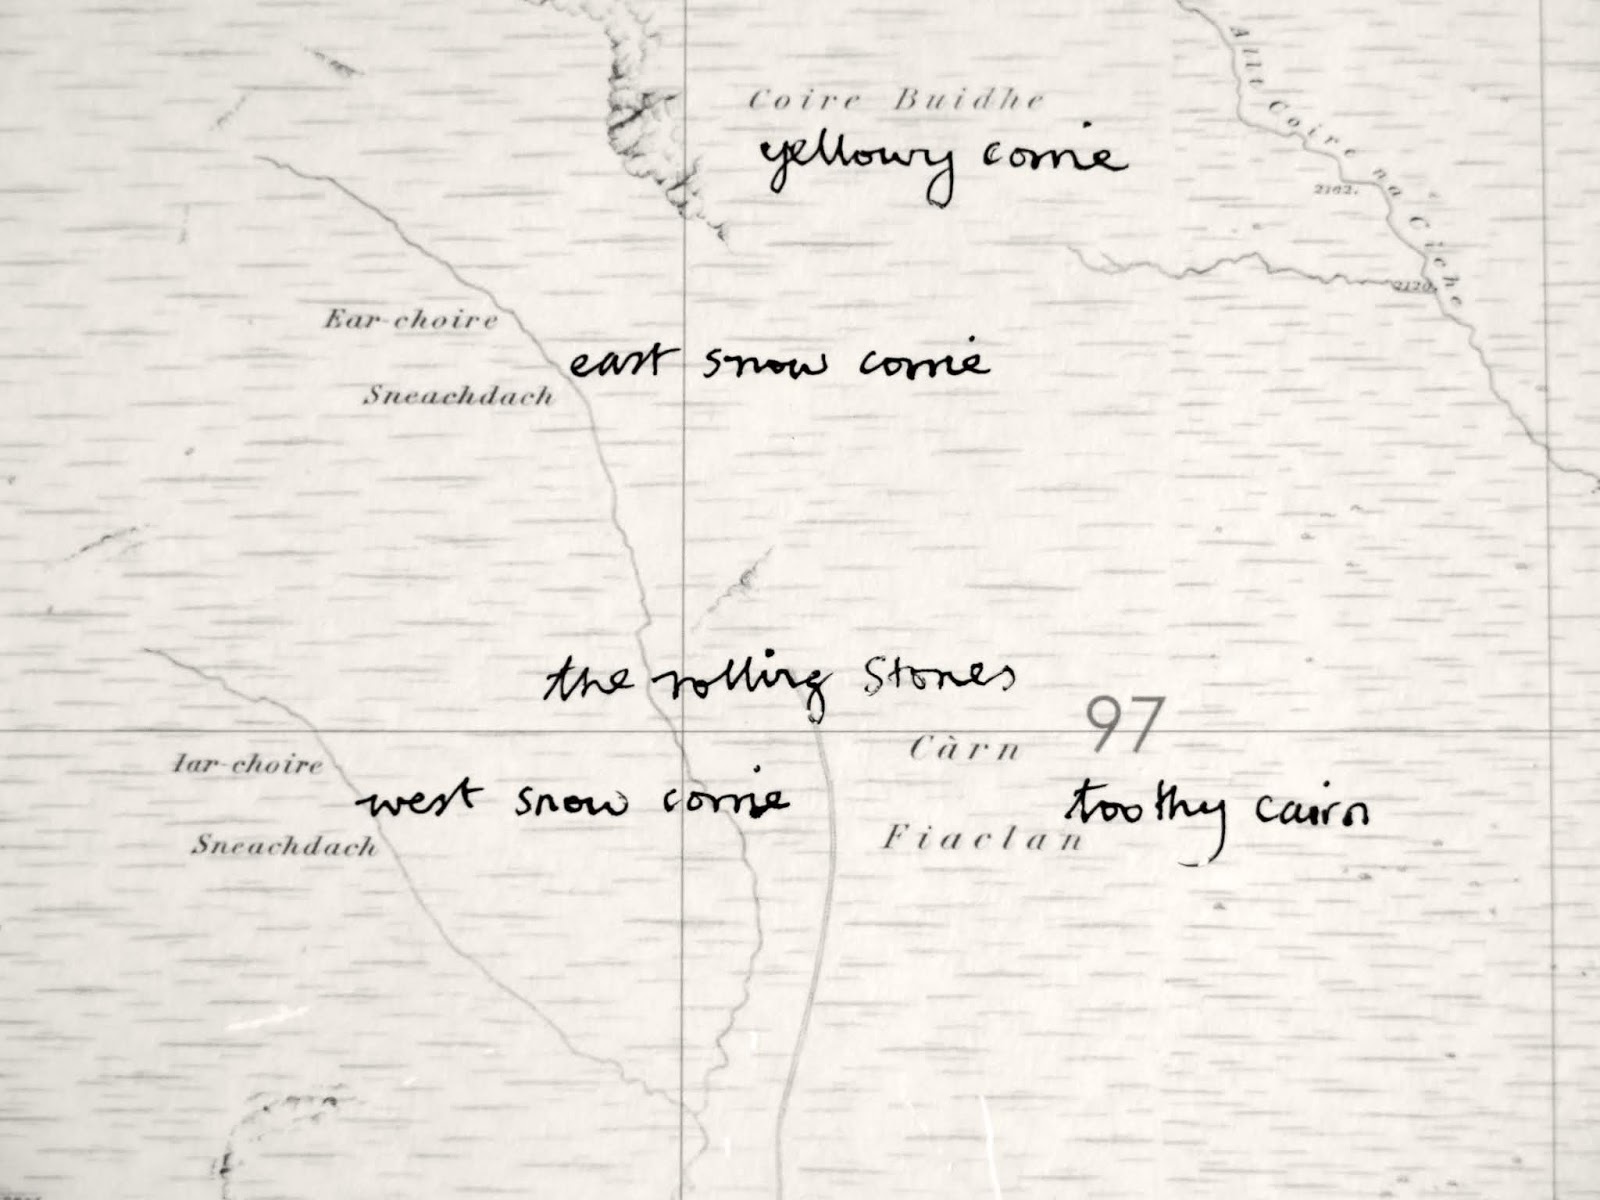 Allt Coire na Cìche
Coire Buidhe
yellowy corrie
2162.
2120.
Ear-choire
Sneachdach
east snow corrie
the rolling Stones
97
Càrn
Fiaclan
toothy cairn
Iar-choire
Sneachdach
west snow corrie